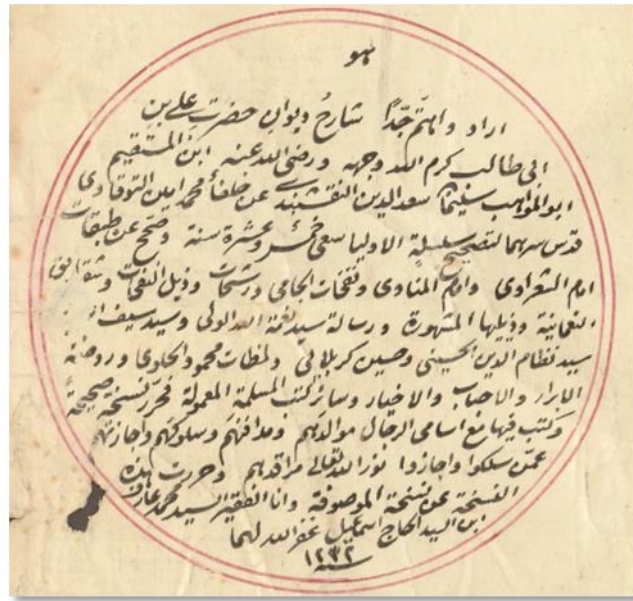 هو
اراد واهتم جدًّا شارحُ ديوان حضرت علي بن
ابى طالب كرم الله وجهه ورضى الله عنه ابن المستقيم
ابو المواهب سليمان سعد الدين النقشبندى عن خلفاً محمد امين التوقادى
قدس سرهما لتصحيح سلسلة الاوليا سعى خمس وعشرة سنة وصحح عن طبقات
امام الشعراوى وامام المناوى ونفحات الجامى ورشحات وذيل النفحات وشقايق
النعمانية وذيلها المشهورة ورسالة سيد نعمة الله الولى وسيد سيف
سيد نظام الدين الحسينى وحسين كربلائى ولمظات محمود الحلوى وروضة
الابرار والاحباب والاخيار وسائر كتب المسلمة المعمولة فحرّر نسخة صحيحةً
وكتب فيها مع اسامى الرجال موالدهم ومدافنهم وسلوكهم واجازتهم
عمّن سلكوا واجازوا نور الله تعالى مراقدهم وحررت هذه
النسخة عن نسخة الموصوفة وانا الفقير السيد محمد عارف
بن السيد الحاج اسماعيل غفر الله لهما
سنه ١٢٣٢